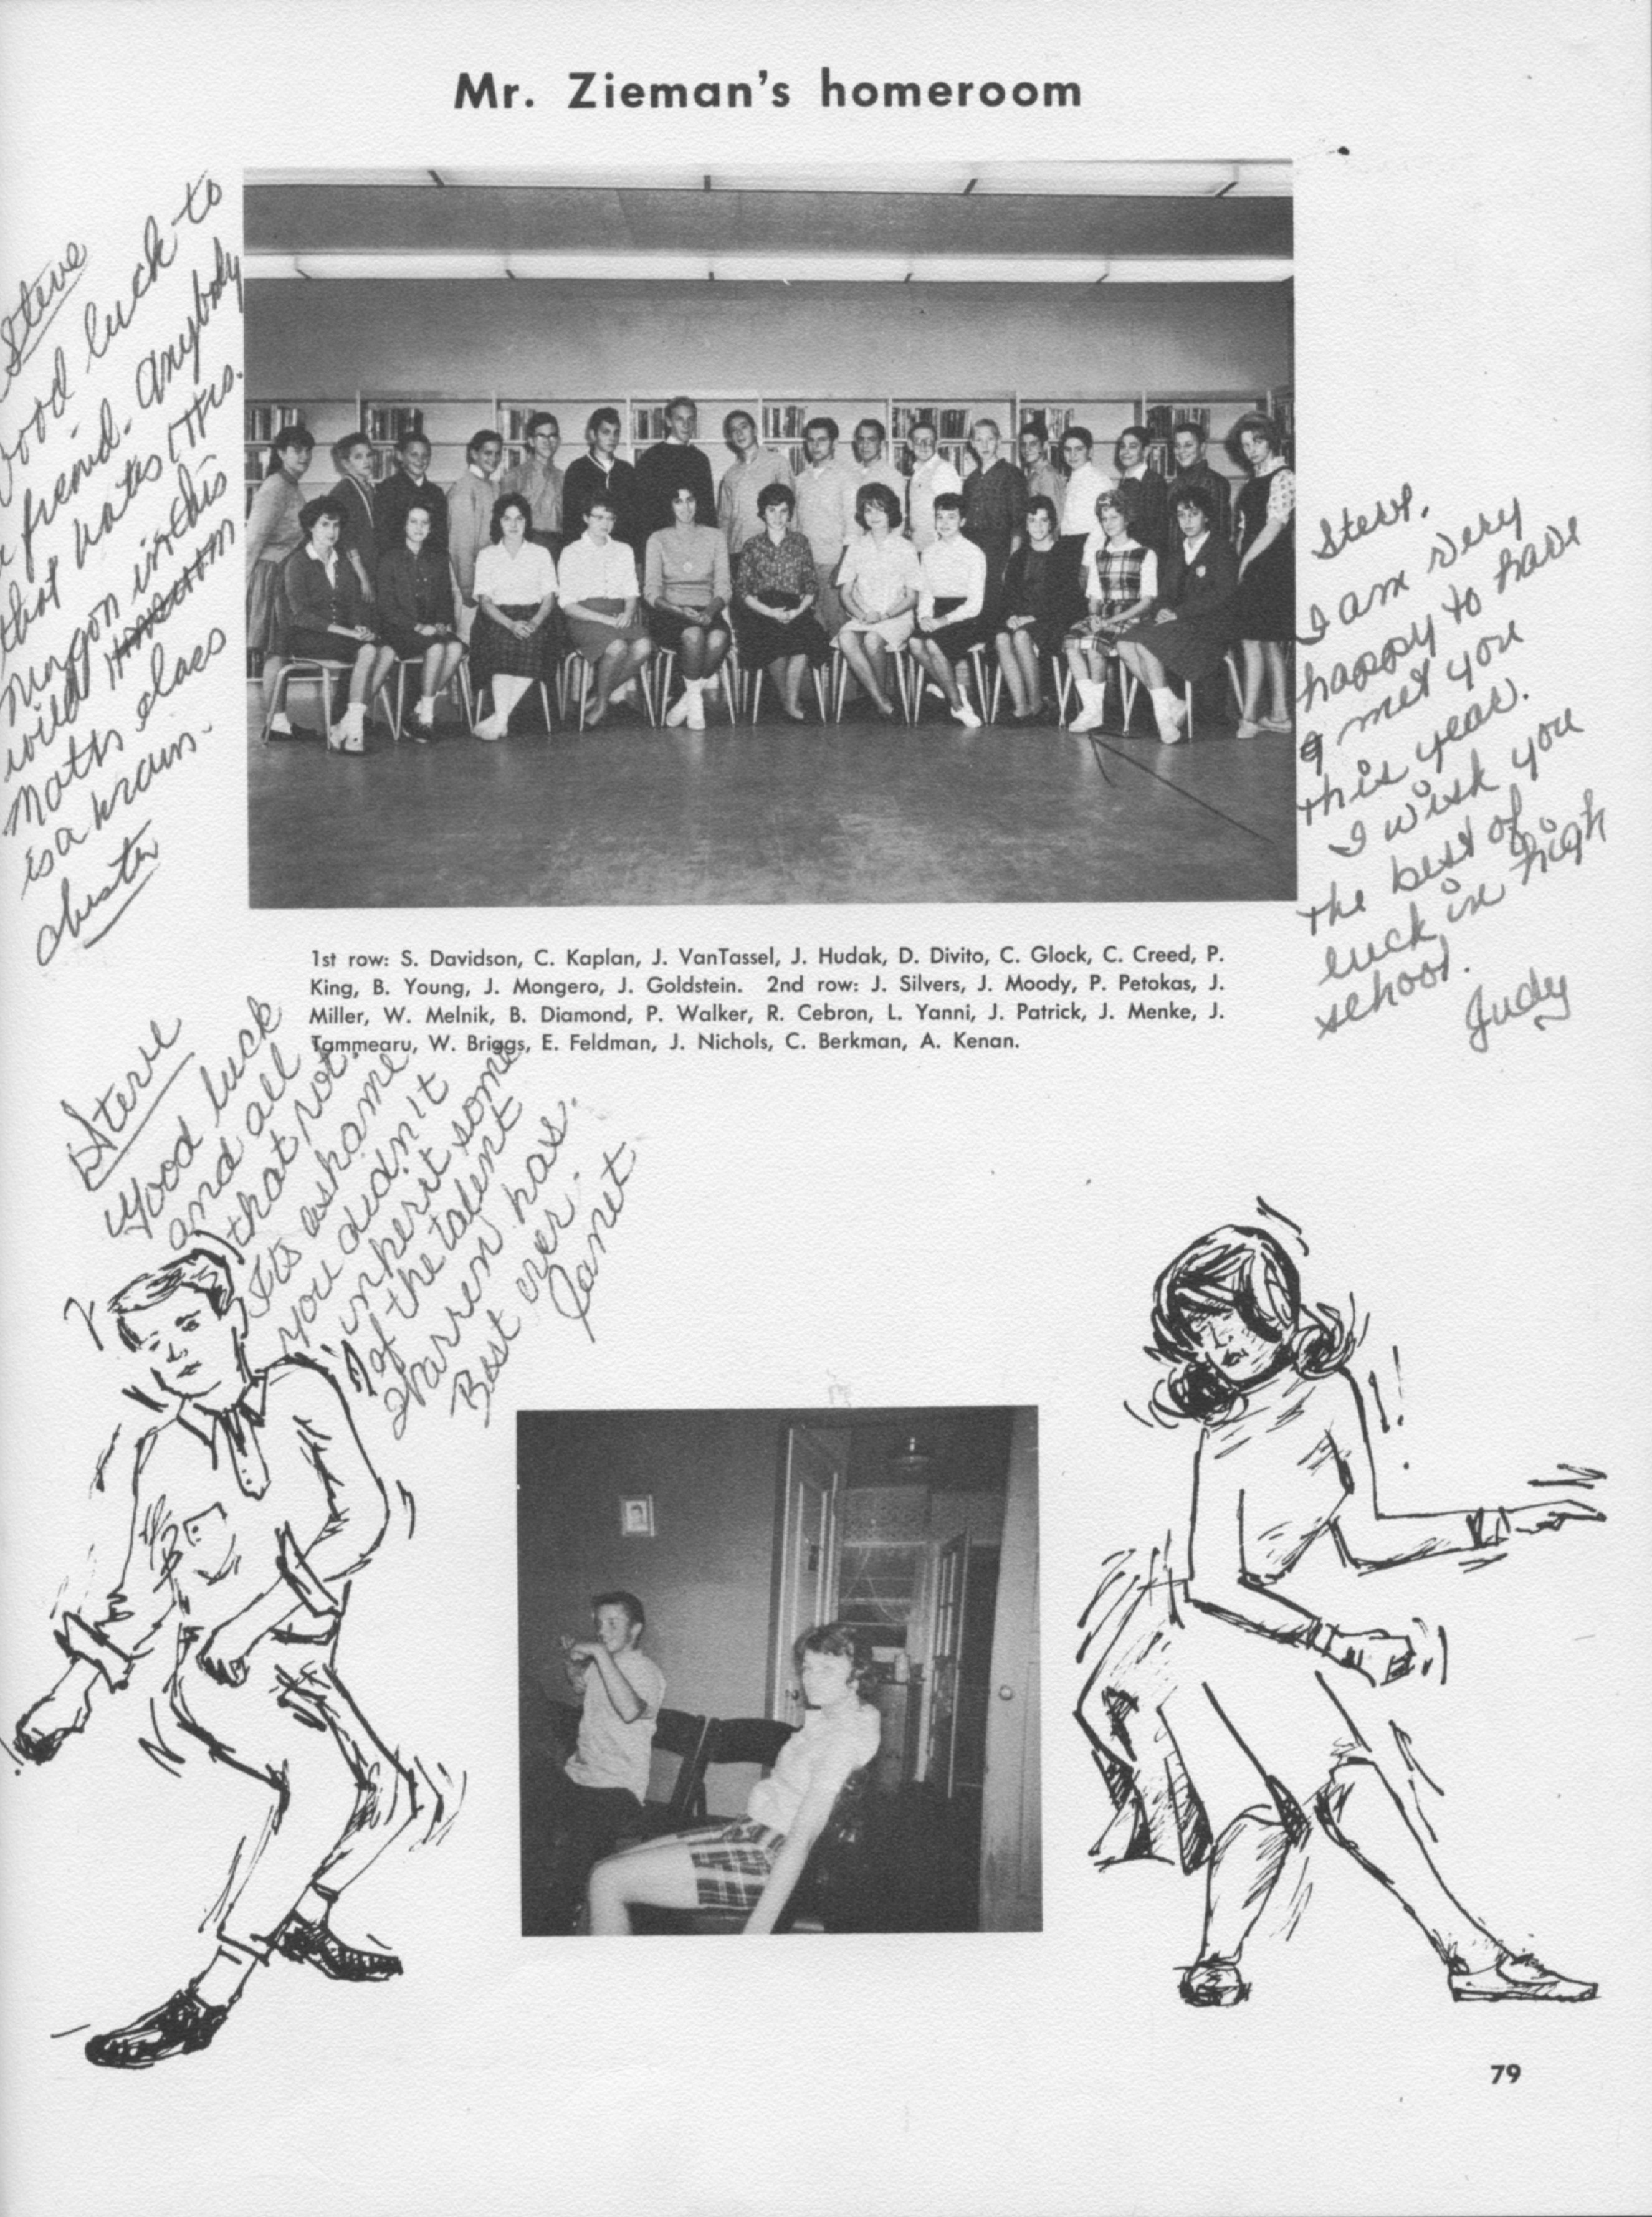 Mr. Zieman's homeroom
Steve
Good luck to
a friend. Anybody
that hates Mrs.
in this
wild
Math class
is a brain.
Steve,
I am very
happy to have
met you
this year.
I wish you
the best of
luck in high
school.
Judy
1st row: S. Davidson, C. Kaplan, J. VanTassel, J. Hudak, D. Divito, C. Glock, C. Creed, P.
King, B. Young, J. Mongero, J. Goldstein. 2nd row: J. Silvers, J. Moody, P. Petokas, J.
Miller, W. Melnik, B. Diamond, P. Walker, R. Cebron, L. Yanni, J. Patrick, J. Menke, J.
Tammearu, W. Briggs, E. Feldman, J. Nichols, C. Berkman, A. Kenan.
Steve
Good luck
and all
that rot.
Its ashame
you didn't
inherit some
of the talent
Warren has.
Best ever.
Janet
79